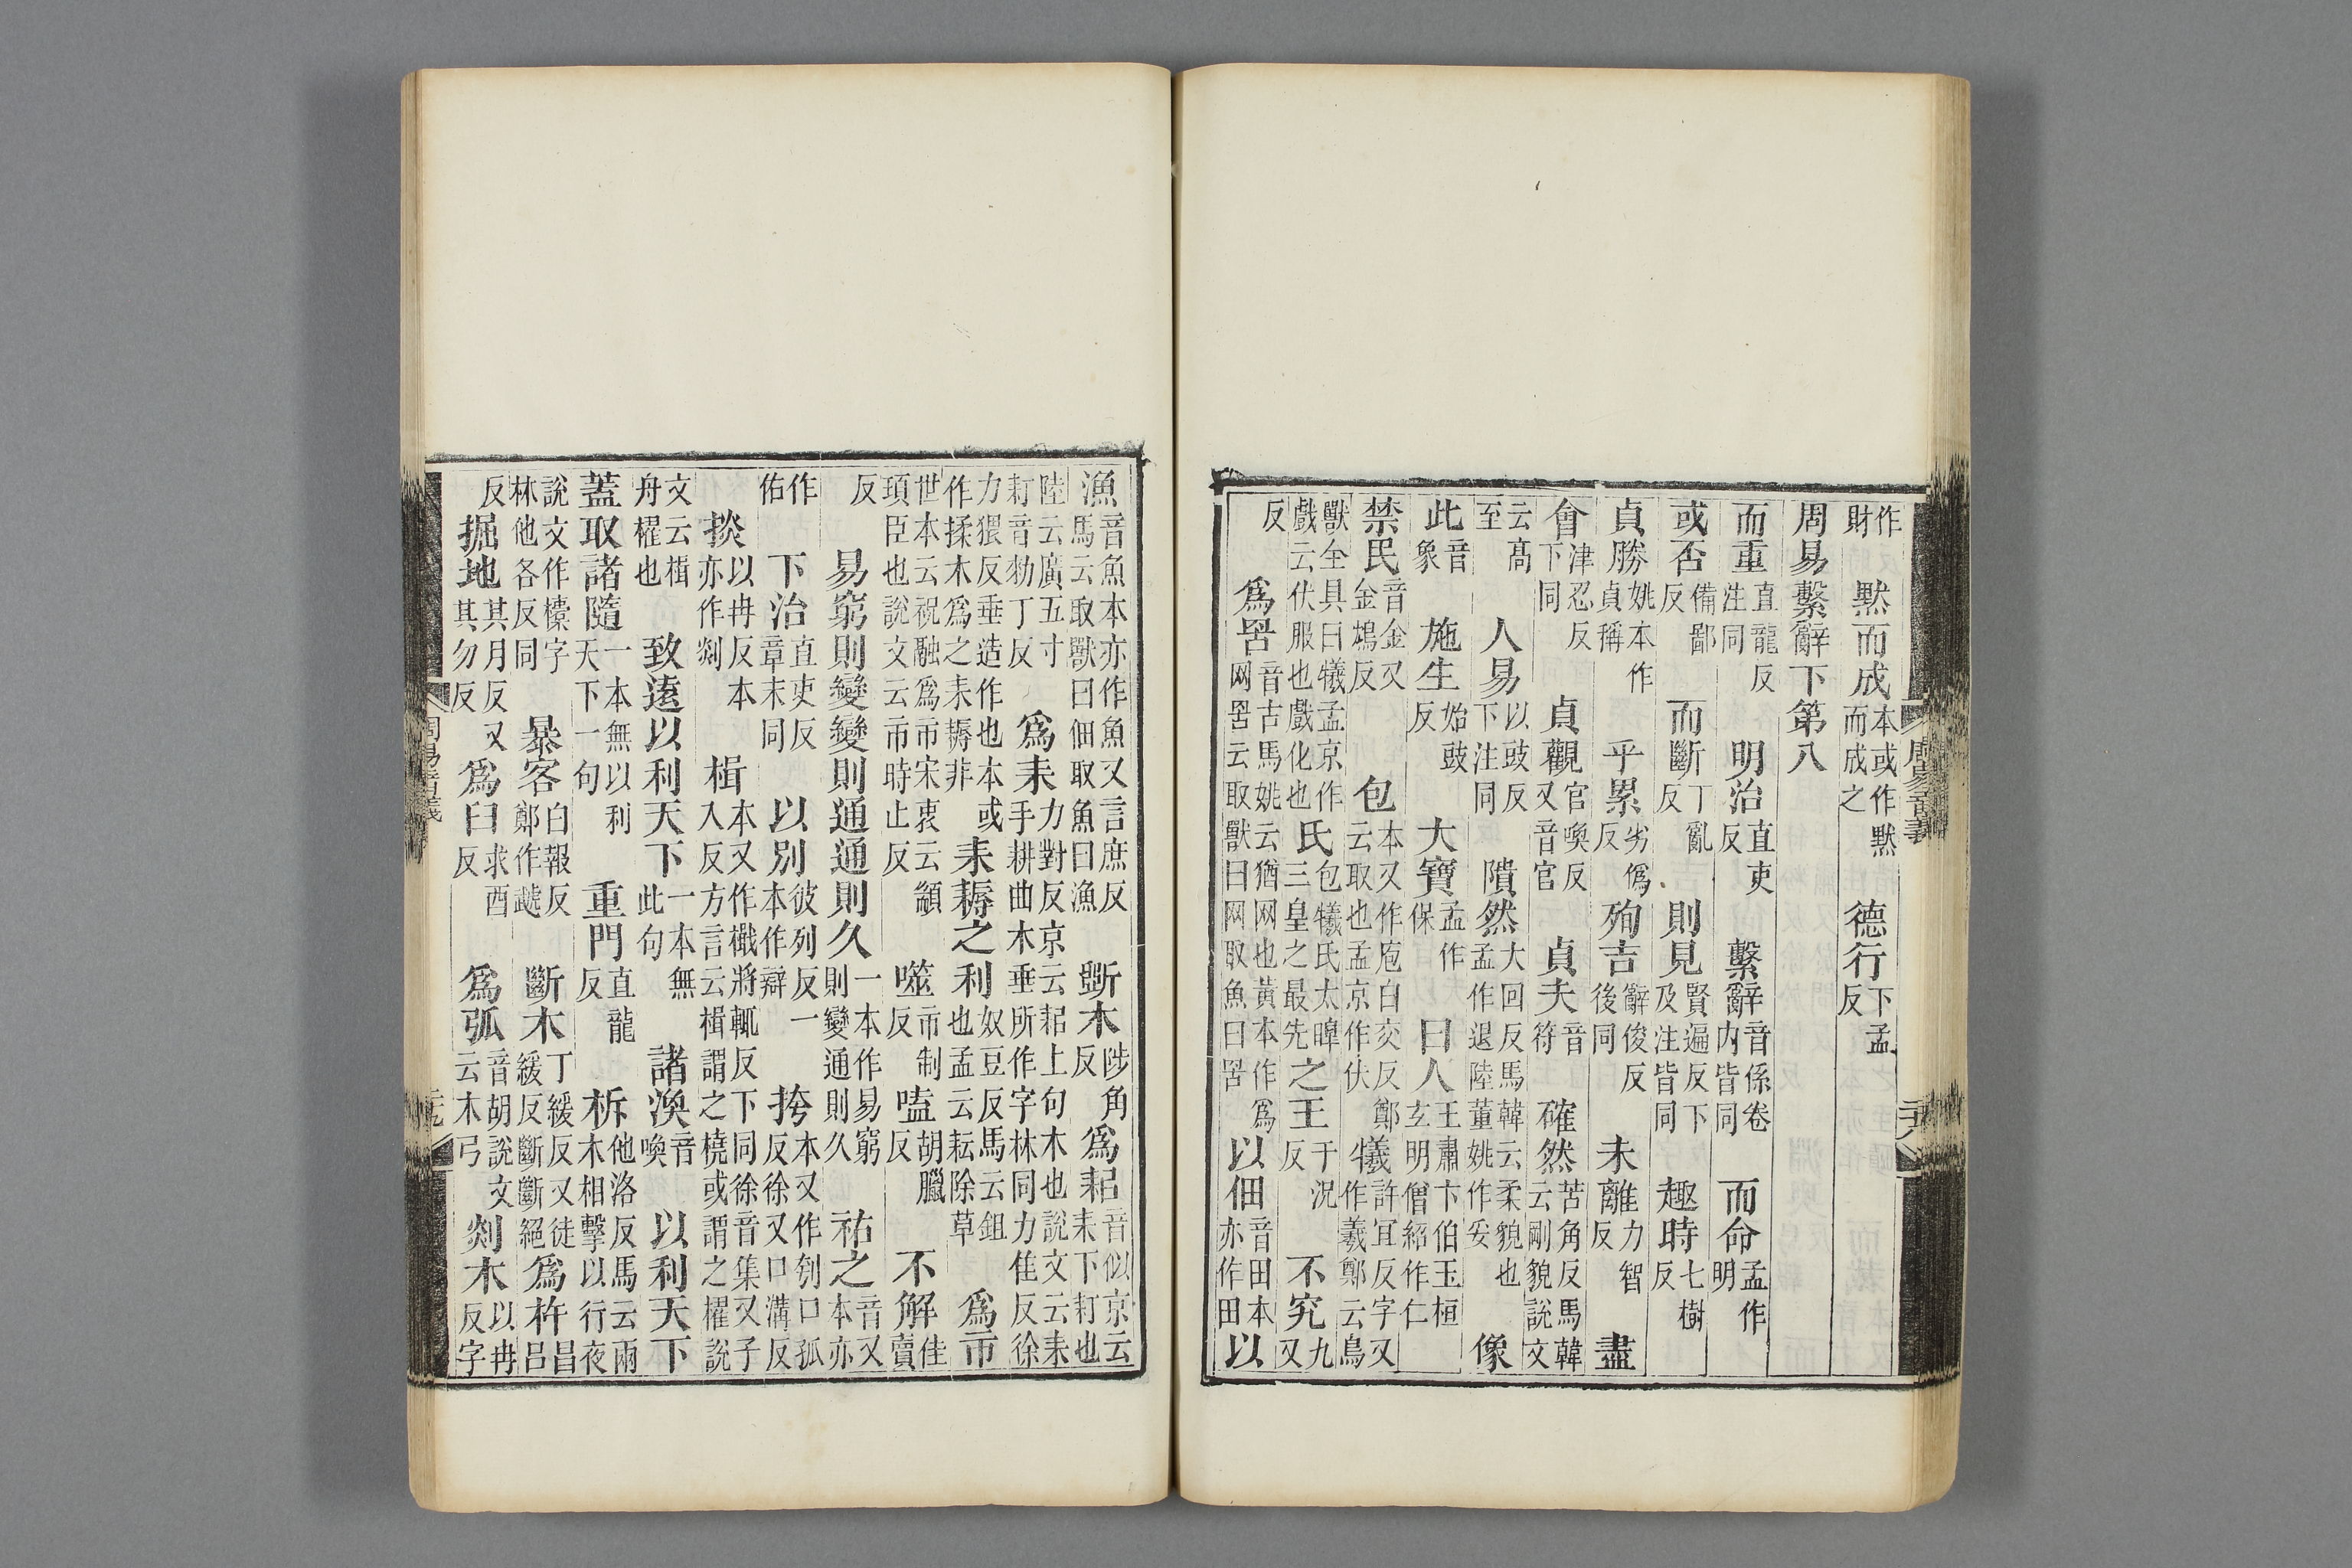 周易音義
二十八
作財 默而成本或作默而成之 德行下孟反
周易繫辭下第八
而重直龍反注同 明治直吏反 繫辭音係卷内皆同 而命孟作明
或否備鄙反 而斷丁亂反 則見賢遍反下及注皆同 趣時七樹反
貞勝姚本作貞稱 乎累劣僞反 殉吉辭俊反後同 未離力智反 盡
會津忍反下同 貞觀官喚反又音官 貞夫音符 確然苦角反馬韓云剛貌説文
云髙至 人易以豉反下注同 隤然大回反馬韓云柔貌也孟作退陸董姚作妥 像
此音象 施生始豉反 大寶孟作保 曰人王肅卞伯玉桓玄明僧紹作仁
禁民音金又金鴆反 包本又作庖白交反鄭云取也孟京作伏 犧許宜反字又作羲鄭云鳥
獸全具曰犧孟京作戲云伏服也戲化也 氏包犧氏太皞三皇之最先 之王于况反 不究九又
反 爲罟音古馬姚云猶网也黃本作爲网罟云取獸曰网取魚曰罟 以佃音田本亦作田 以
漁音魚本亦作魚又言庶反馬云取獸曰佃取魚曰漁 斲木陟角反 爲耜音似京云耒下耓也
陸云廣五寸耓音勑丁反 爲耒力對反京云耜上句木也説文云耒手耕曲木垂所作字林同力佳反徐
力猥反垂造作也本或作揉木爲之耒耨非 耒耨之利奴豆反馬云鉏也孟云耘除草 爲市
世本云祝融爲市宋衷云顓頊臣也説文云市時止反 噬市制反 嗑胡臘反 不解佳賣
反 易窮則變變則通通則久一本作易窮則變通則久 祐之音又本亦
作佑 下治直吏反章末同 以別彼列反一本作辯 挎本又作刳口孤反徐又口溝反
掞以冉反本亦作剡 楫本又作檝將輒反下同徐音集又子入反方言云楫謂之橈或謂之櫂説
文云楫舟櫂也 致遠以利天下一本無此句 諸渙音喚 以利天下
蓋取諸隨一本無以利天下一句 重門直龍反 柝他洛反馬云兩木相擊以行夜
説文作㯓字林他各反同 暴客白報反鄭作虣 斷木丁緩反又徒緩反斷斷絕 爲杵昌吕
反 掘地其月反又其勿反 爲臼求酉反 爲弧音胡説文云木弓 剡木以冉反字
周易音義